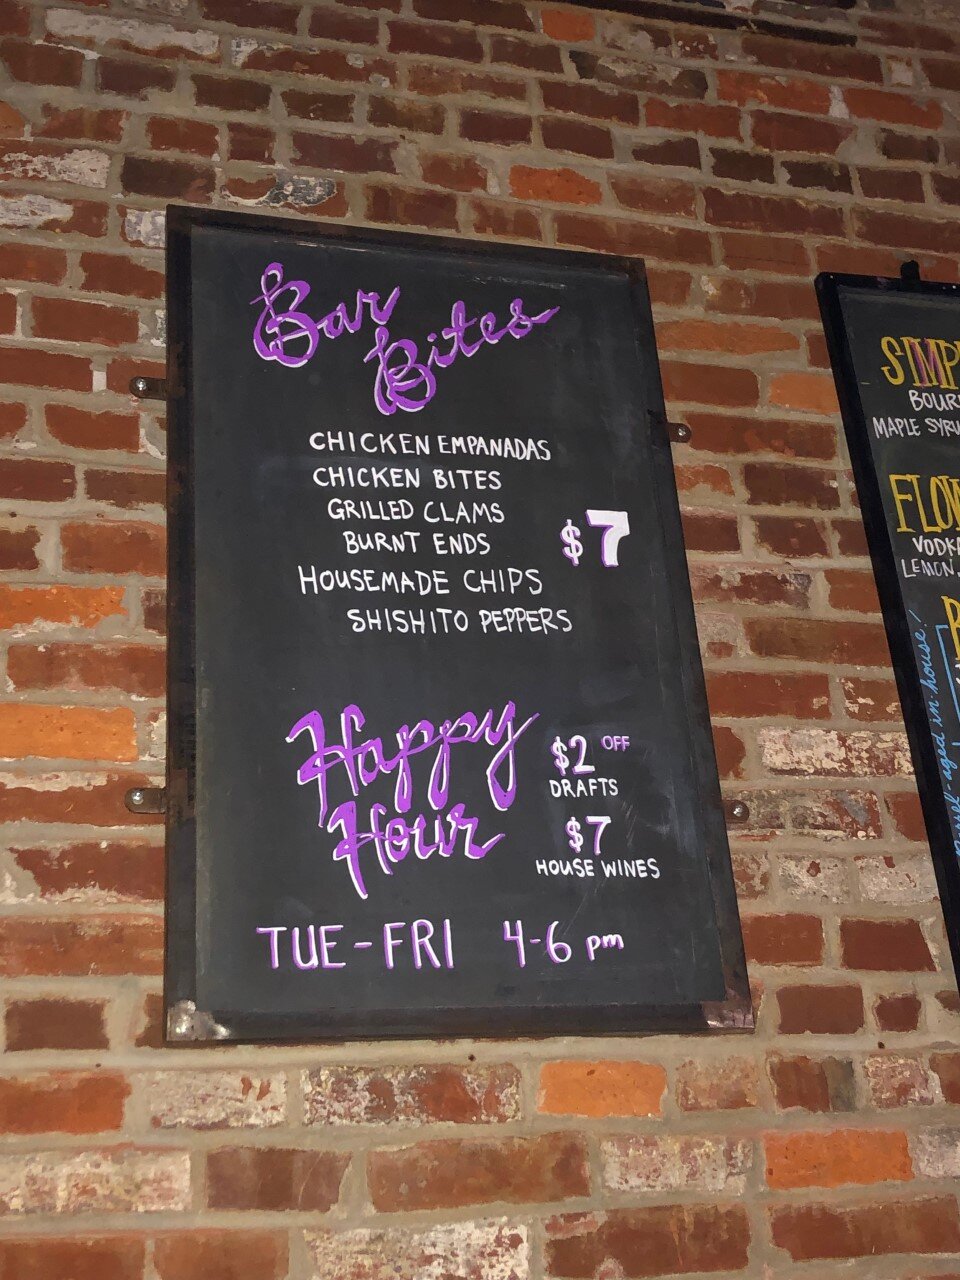 Bar
Bites
CHICKEN EMPANADAS
CHICKEN BITES
GRILLED CLAMS
BURNT ENDS
$7
HOUSEMADE CHIPS
SHISHITO PEPPERS
Happy
Hour
$2 OFF
DRAFTS
$7
HOUSE WINES
TUE-FRI 4-6 pm
MAPLE
VODKA
LEMON
-aged in house!